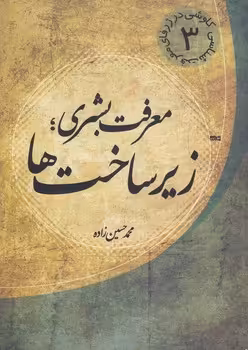 کاوشی در ژرفای معرفت شناسی
۳
معرفت بشری؛
زیرساخت‌ها
محمد حسین‌زاده